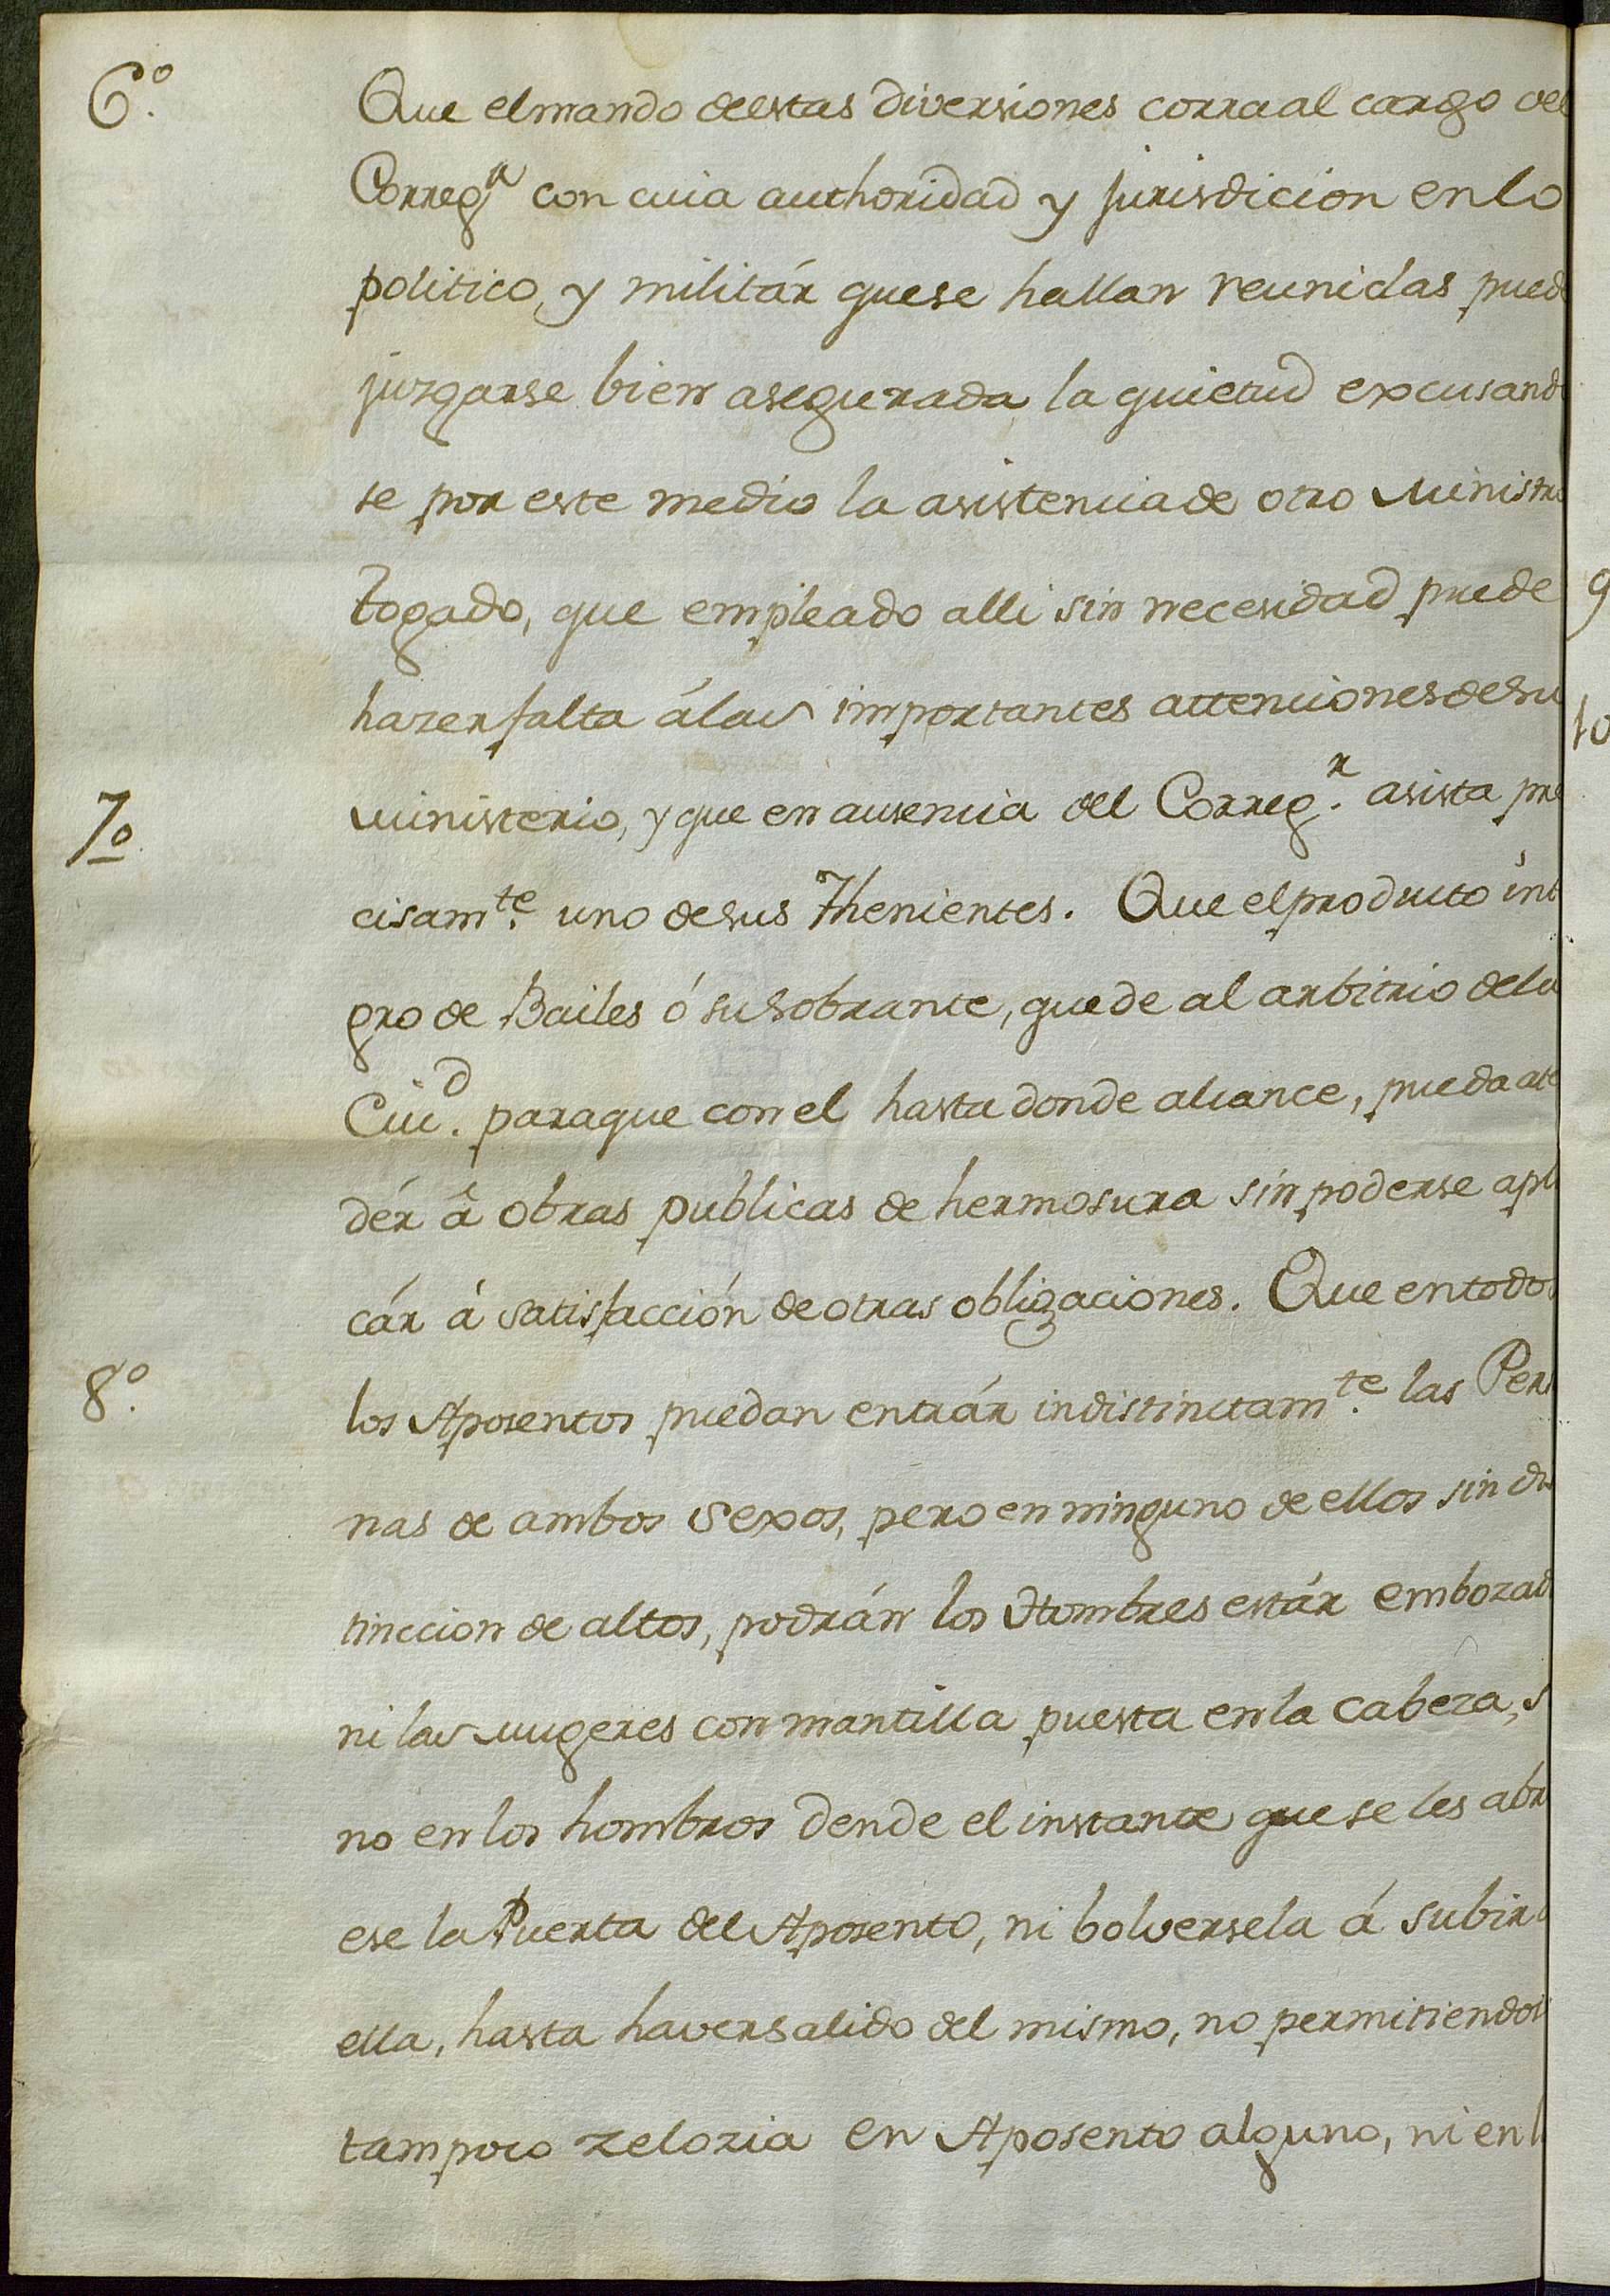 6.º Que el mando de estas diversiones corra al cargo del
Correg.r con cuia authoridad y jurisdicion en lo
politico, y militár que se hallan reunidas pued
juzgarse bien asegurada la quietud excusand
se por este medio la asistencia de otro Ministro
togado, que empleado alli sin necesidad puede
hazer falta á las importantes attenciones de su
7.º Ministerio, y que en ausencia del Correg.r asista pre
cisam.te uno de sus Thenientes. Que el producto ínt
gro de Bailes ó su sobrante, quede al arbitrio de la
Ciu.d para que con el hasta donde alcance, pueda ate
dér â obras publicas de hermosura sin poderse apli
cár á satisfacción de otras obligaciones. Que en todos
8.º los Aposentos puedan entrár indistinctam.te las Pers
nas de ambos sexos, pero en ninguno de ellos sin dis
tinccion de altos, podrán los Hombres estár embozad
ni las Mugeres con mantilla puesta en la cabeza, s
no en los hombros dende el instante que se les abri
ese la Puerta del Aposento, ni bolversela á subir a
ella, hasta haver salido del mismo, no permitiendos
tampoco zelozia en Aposento alguno, ni en l
9
10